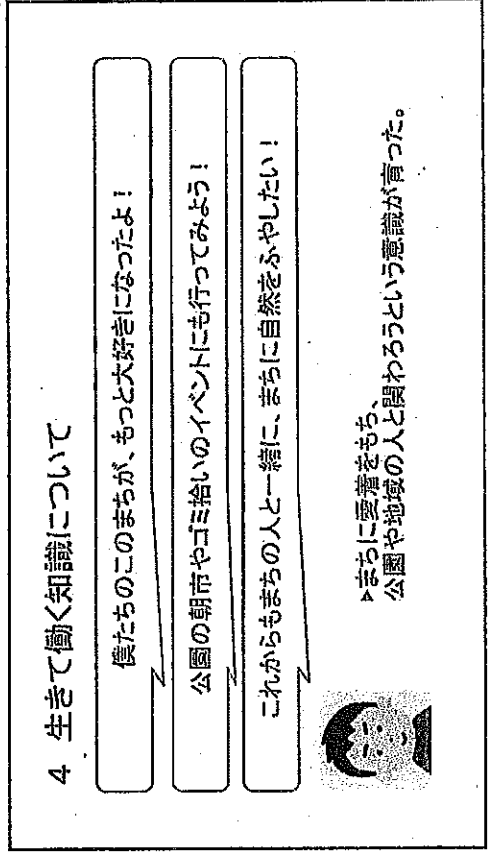 4 生きて働く知識について
僕たちのこのまちが、もっと大好きになったよ！
公園の朝市やゴミ拾いのイベントにも行ってみよう！
これからもまちの人と一緒に、まちに自然をふやしたい！
▶まちに愛着をもち、
公園や地域の人と関わろうという意識が育った。